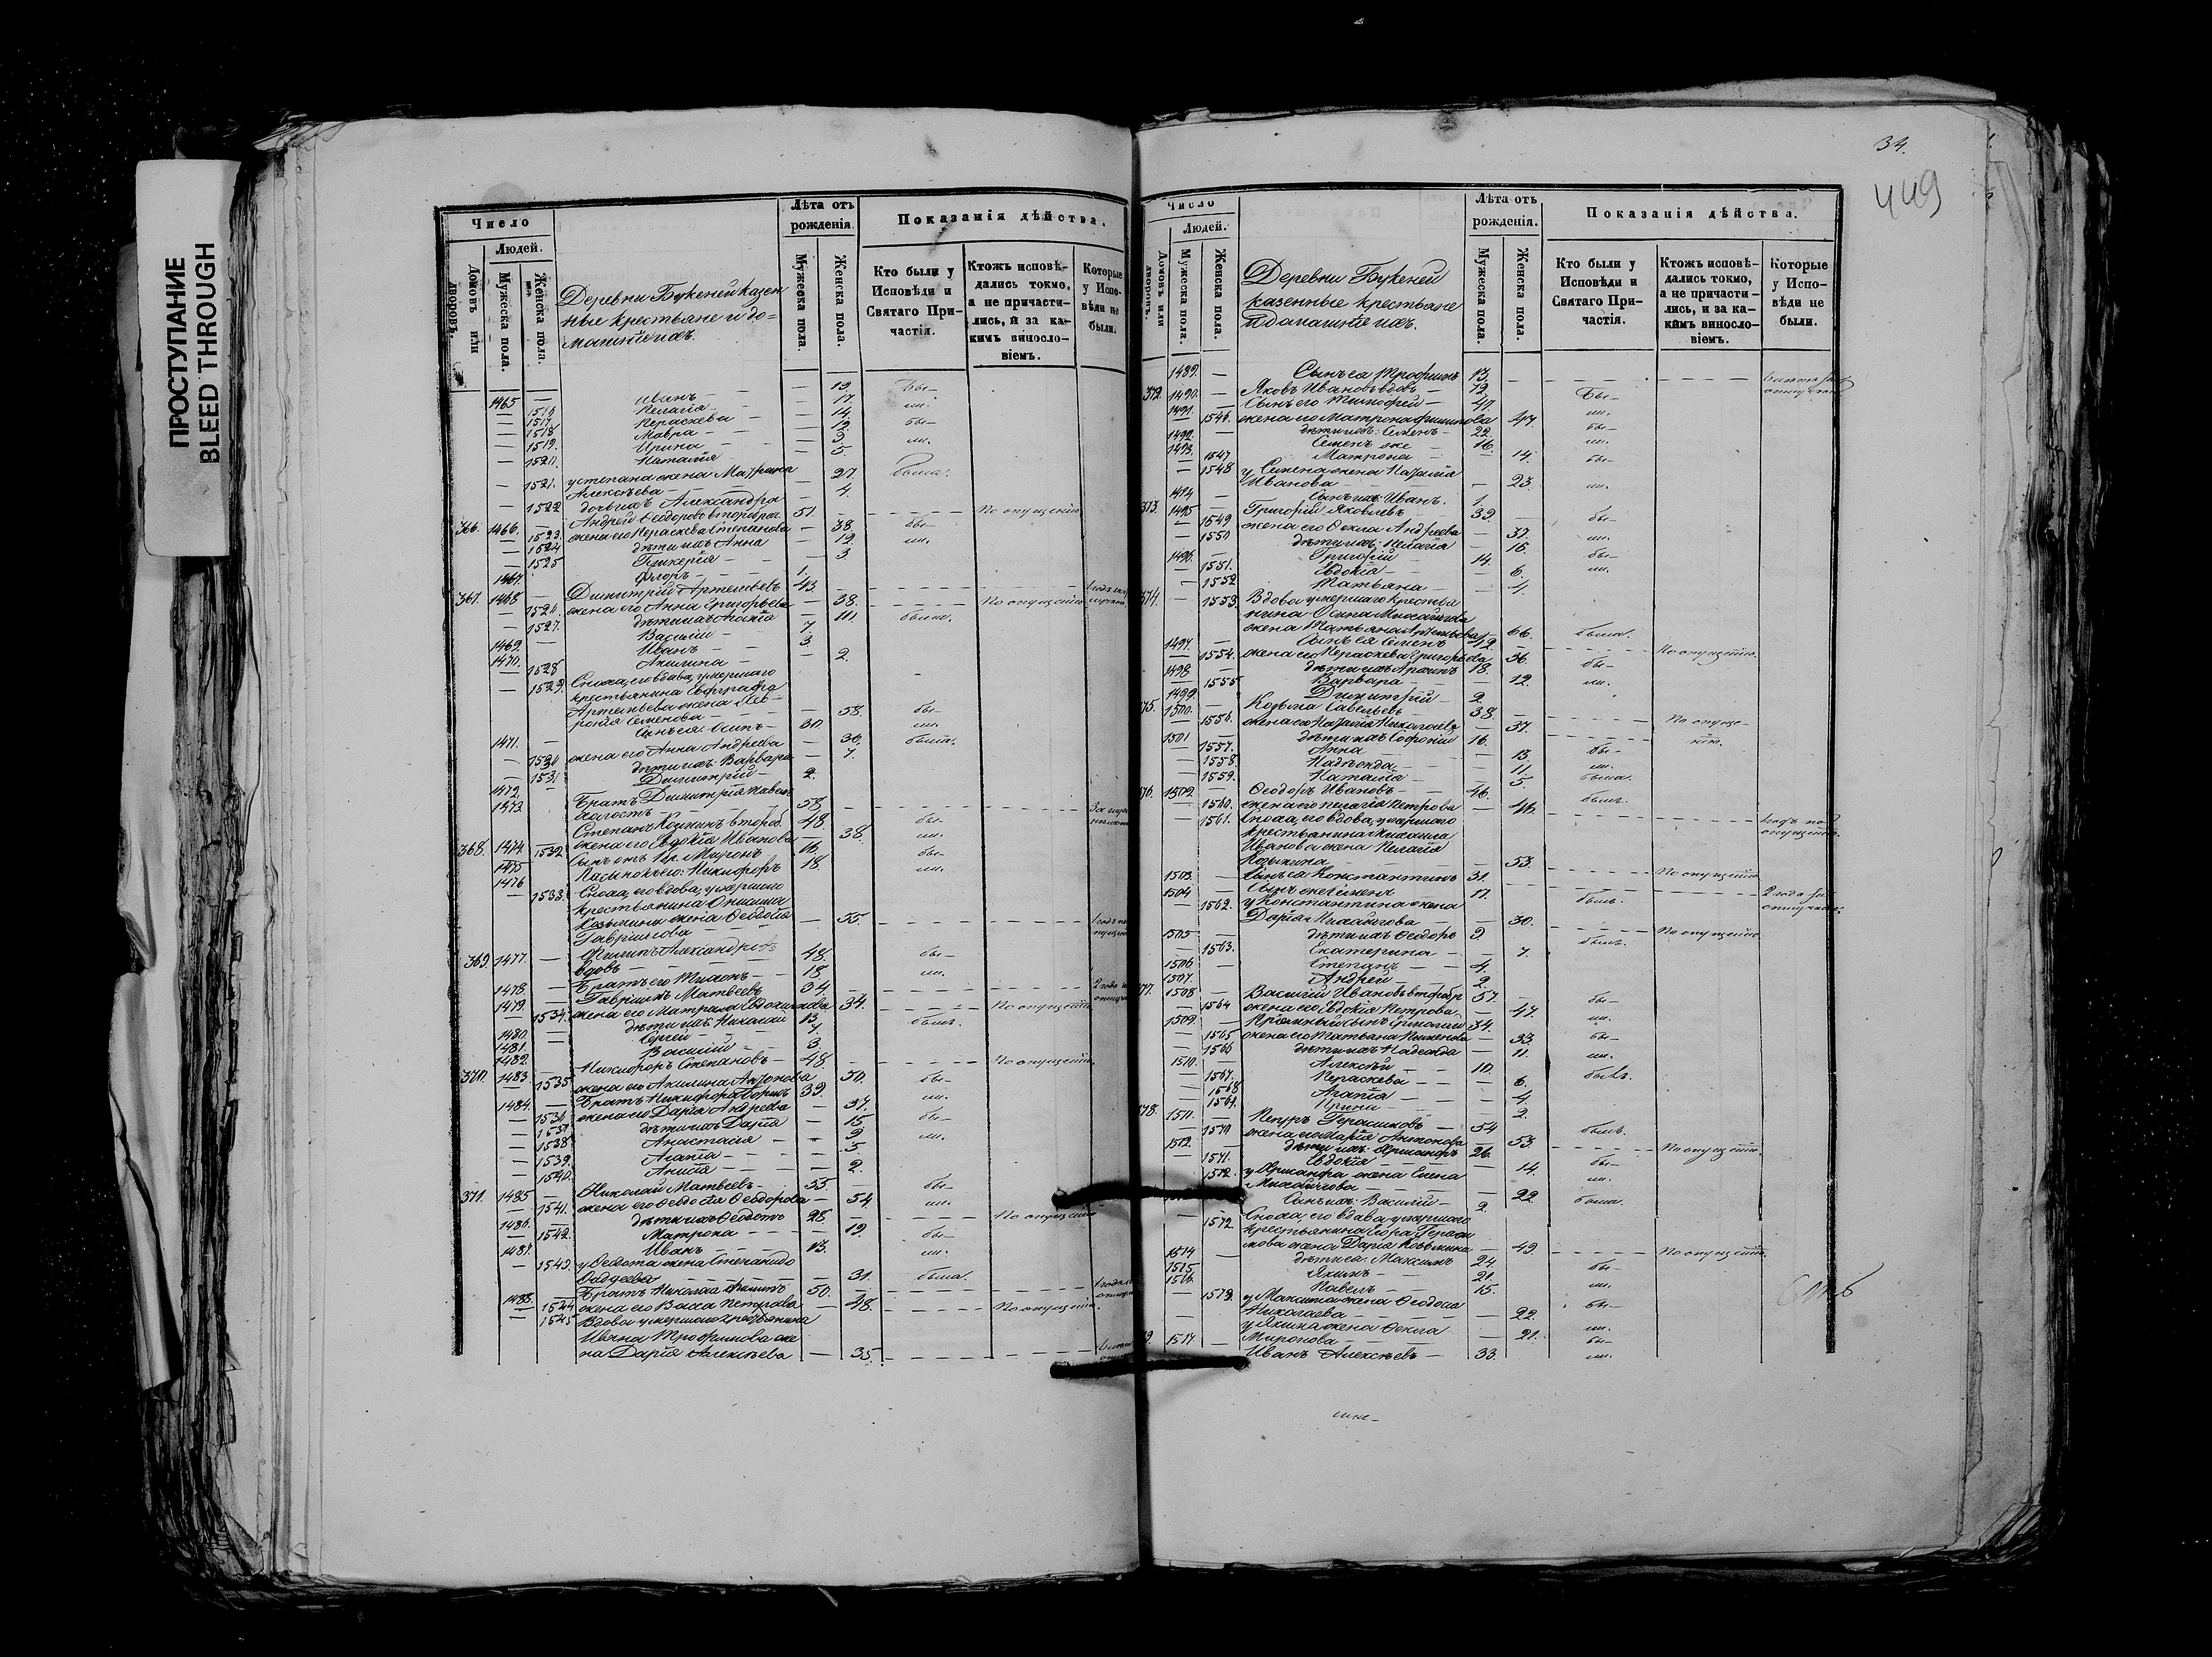 ПРОСТУПАНИЕ
BLEED THROUGH
34.
449
Число
Людей.
Домовъ или дворовъ.
Мужеска пола.
Женска пола.
Деревни Букеней казен
ные крестьяне и до=
машніе ихъ.
Лѣта отъ рожденія.
Мужеска пола.
Женска пола.
Показанія дѣйства.
Кто были у Исповѣди и Святаго Причастія.
Ктожъ исповѣдались токмо, а не причастились, и за какимъ винословіемъ.
Которые у Исповѣди не были.
1465 — Иванъ — 19 бы–
— 1516 Пелагія — 17 ли.
— 1517 Пераскева — 14 бы–
— 1518 Мавра — 12 ли.
— 1519. Ирина — 9
— 1520. Наталія — 5.
— 1521. у Степана жена Матрона
Алексѣева — 27. была.
— 1522 дочь ихъ Александра — 4.
366. 1466. — Андрей Ѳеодоровъ второбрач. 51. По опущенію
— 1523. жена его Пераскева Степанова — 38. бы–
— 1524 дѣти ихъ Анна — 12. ли.
— 1525 Гликерія — 3.
1467. Флоръ — 1.
367. 1468 — Димитрій Артемьевъ 43.
— 1526. жена его Анна Григорьева — 38. По опущенію
— 1527. дѣти ихъ Агафія — 10. была.
1469. — Василій — 7.
1470. — Иванъ — 3.
— 1528 Акилина — 2.
— 1529. Сноха, его вдова, умершаго
крестьянина Евграфа
Артемьева жена Мат–
рона Семенова — 58. бы–
1471. — Сынъ ея: Осипъ — 30. ли.
— 1530 жена его Анна Андреева — 30. была.
— 1531. дѣти ихъ: Варвара — 7.
1472. — Димитрій — 2.
1473. Братъ Димитрія Павелъ
холостъ — 58.
368. 1474. Степанъ Козминъ вторoб. 48. бы–
— 1532 жена его Евдокія Иванова — 38. ли.
1475 Сынъ отъ 1 бр. Миронъ 16. бы–
1476 Пасынокъ его: Никифоръ 18. ли.
— 1533. Сноха, его вдова, умершаго
крестьянина Онисима
Козьмина жена Ѳеодосія
Гаврилова — 55.
369. 1477. — Филипъ Александровъ
вдовъ — 48. бы–
1478. — Братъ его Тихонъ — 18. ли.
1479. — Гаврилъ Матвеевъ 34.
1534. жена его Матрона Евдокимова 34. По опущенію
1480. — дѣти ихъ Николай 13. былъ.
1481. — Сергей — 7.
1482. — Василій — 3.
370. 1483. — Никифоръ Степановъ — 48. По опущенію
1535 жена его Акилина Антонова 50. бы–
1484. — Братъ Никифора Борисъ 39. ли.
— 1536 жена его Дарія Андреева — 37. бы–
— 1537 дѣти ихъ Дарія — 15 ли.
— 1538 Анастасія — 9
— 1539. Агафія — 5.
— 1540. Анисія — 2.
371. 1485 — Николай Матвеевъ — 55 бы–
— 1541. жена его Ѳеодосія Ѳеодорова — 54. ли.
1486. — дѣти ихъ Ѳедотъ 28. По опущенію
— 1542. Матрона — 19. бы–
1487. — Иванъ — 13. ли.
— 1543. у Ѳедота жена Степанида
Ѳаддеева — 31. была.
1488. — Братъ Николая Филипъ 50.
— 1544 жена его Васса Петрова — 48. По опущенію.
— 1545 Вдова умершаго крестьянина
Ивана Трофимова же
на Дарія Алексѣева — 35.
Число
Людей.
Домовъ или дворовъ.
Мужеска пола.
Женска пола.
Деревни Букеней
казенные крестьяне
и домашніе ихъ.
Лѣта отъ рожденія.
Мужеска пола.
Женска пола.
Показанія дѣйства.
Кто были у Исповѣди и Святаго Причастія.
Ктожъ исповѣдались токмо, а не причастились, и за какимъ винословіемъ.
Которые у Исповѣди не были.
1489. — Сынъ ея Трофимъ 13.
372. 1490. — Яковъ Ивановъ вдовъ — 72. бы–
1491. Сынъ его Тимофей — 47. ли.
— 1546. жена его Матрона Филипова 47. бы–
1492. — дѣти ихъ: Семенъ — 22. ли.
1493. Семенъ же 16.
— 1547 Матрона — 14. бы–
— 1548 у Семена жена Наталія
Иванова — 23. ли.
1494 — Сынъ ихъ: Иванъ. 1.
373. 1495 — Григорій Яковлевъ 39. бы–
— 1549 жена его Ѳекла Андреева — 37. ли.
— 1550 дѣти ихъ: Пелагія — 16. бы–
1496. — Григорій 14. ли.
— 1551. Евдокія — 6.
— 1552 Татьяна — 4.
374. — 1553. Вдова умершаго крестья
нина Осипа Михайлова
жена Татьяна Артемьева — 66. была.
1497. — Сынъ ея Семенъ 42. По опущенію.
— 1554. жена его Пераскева Григорьева 36. бы–
1498. — дѣти ихъ Архипъ 18. ли.
— 1555 Варвара — 12.
1499. Димитрій — 2.
375. 1500. — Козьма Савельевъ 38. По опуще–
— 1556. жена его Наталія Николаева 37. нію.
1501 — дѣти ихъ Софроній 16. бы–
— 1557. Анна — 13. ли.
— 1558. Надежда — 11. была.
— 1559. Наталія — 5.
376. 1502. — Ѳеодоръ Ивановъ — 46. былъ.
— 1560. жена его Пелагія Петрова — 46.
— 1561. Сноха, его вдова, умершаго
крестьянина Михаила
Иванова жена Пелагія
Козьмина — 53. По опущенію
1503. — Сынъ ея Константинъ 31.
1504 — Сынъ же Семенъ 17. былъ.
— 1562. у Константина жена
Дарія Михайлова — 30. По опущенію
1505 — дѣти ихъ Ѳеодоръ 9. былъ.
— 1563. Екатерина — 7.
1506. — Степанъ — 4.
1507. — Андрей — 2.
377. 1508 — Василій Ивановъ вторoбр. 57. бы–
— 1564 жена его Евдокія Петрова — 47. ли.
1509. — Пріемный сынъ Ермолай 34. бы–
— 1565 жена его Татьяна Пименова — 33. ли.
— 1566 дѣти ихъ Надежда — 11.
1510. — Алексѣй — 10. былъ.
— 1567. Пераскева — 6.
— 1568 Агафія — 4.
— 1569. Ирина — 2.
378. 1511. — Петръ Герасимовъ — 54 былъ.
— 1570 жена его Марія Антонова — 53. По опущенію
1512. — 26. бы–
— 1571. Евдокія — 14. ли.
— 1572. жена Елена
Михайлова — 22. была.
Сынъ ихъ: Василій — 2.
— 1572 Сноха, его вдова умершаго
крестьянина Егора Гераси
мова жена Дарія Козьмина — 49. По опущенію.
1514 — дѣти ея: Максимъ 24. бы–
1515 Якимъ — 21. ли.
1516. Павелъ — 15.
— 1573. у Максима жена Ѳеодосія
Николаева — 22. бы–
у Якима жена Ѳекла ли.
Миронова — 21. бы–
379. 1517 — Иванъ Алексѣевъ — 33. ли.